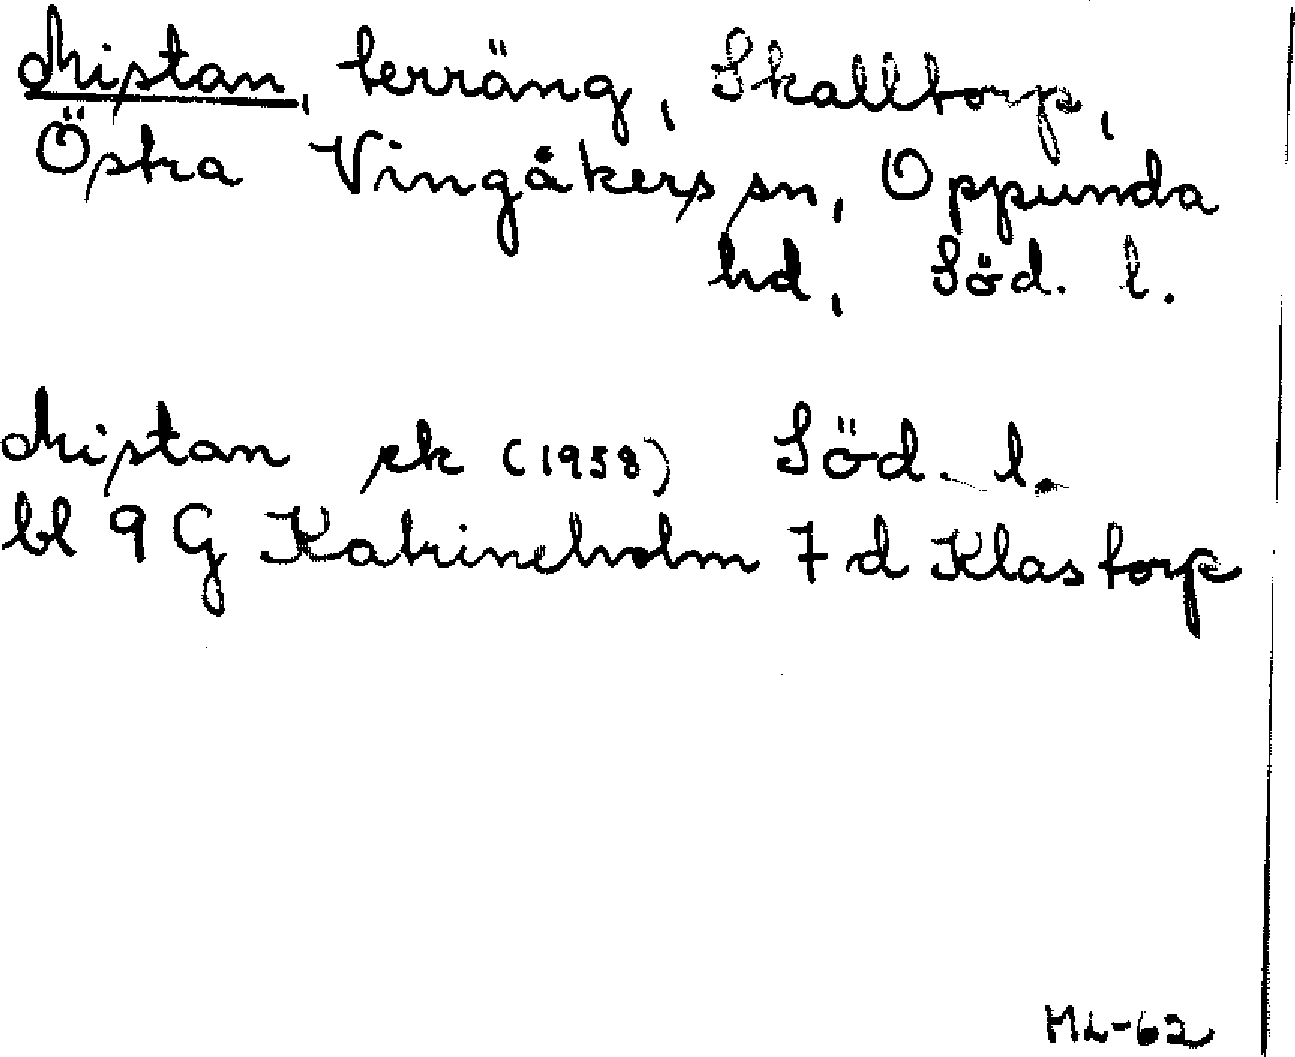 Mistan, terräng, Skalltorp,
Östra Vingåkers sn, Oppunda
hd, Söd. l.
Mistan ek (1958) Söd. l.
bl 9G Katrineholm 7d Klastorp
ML-62